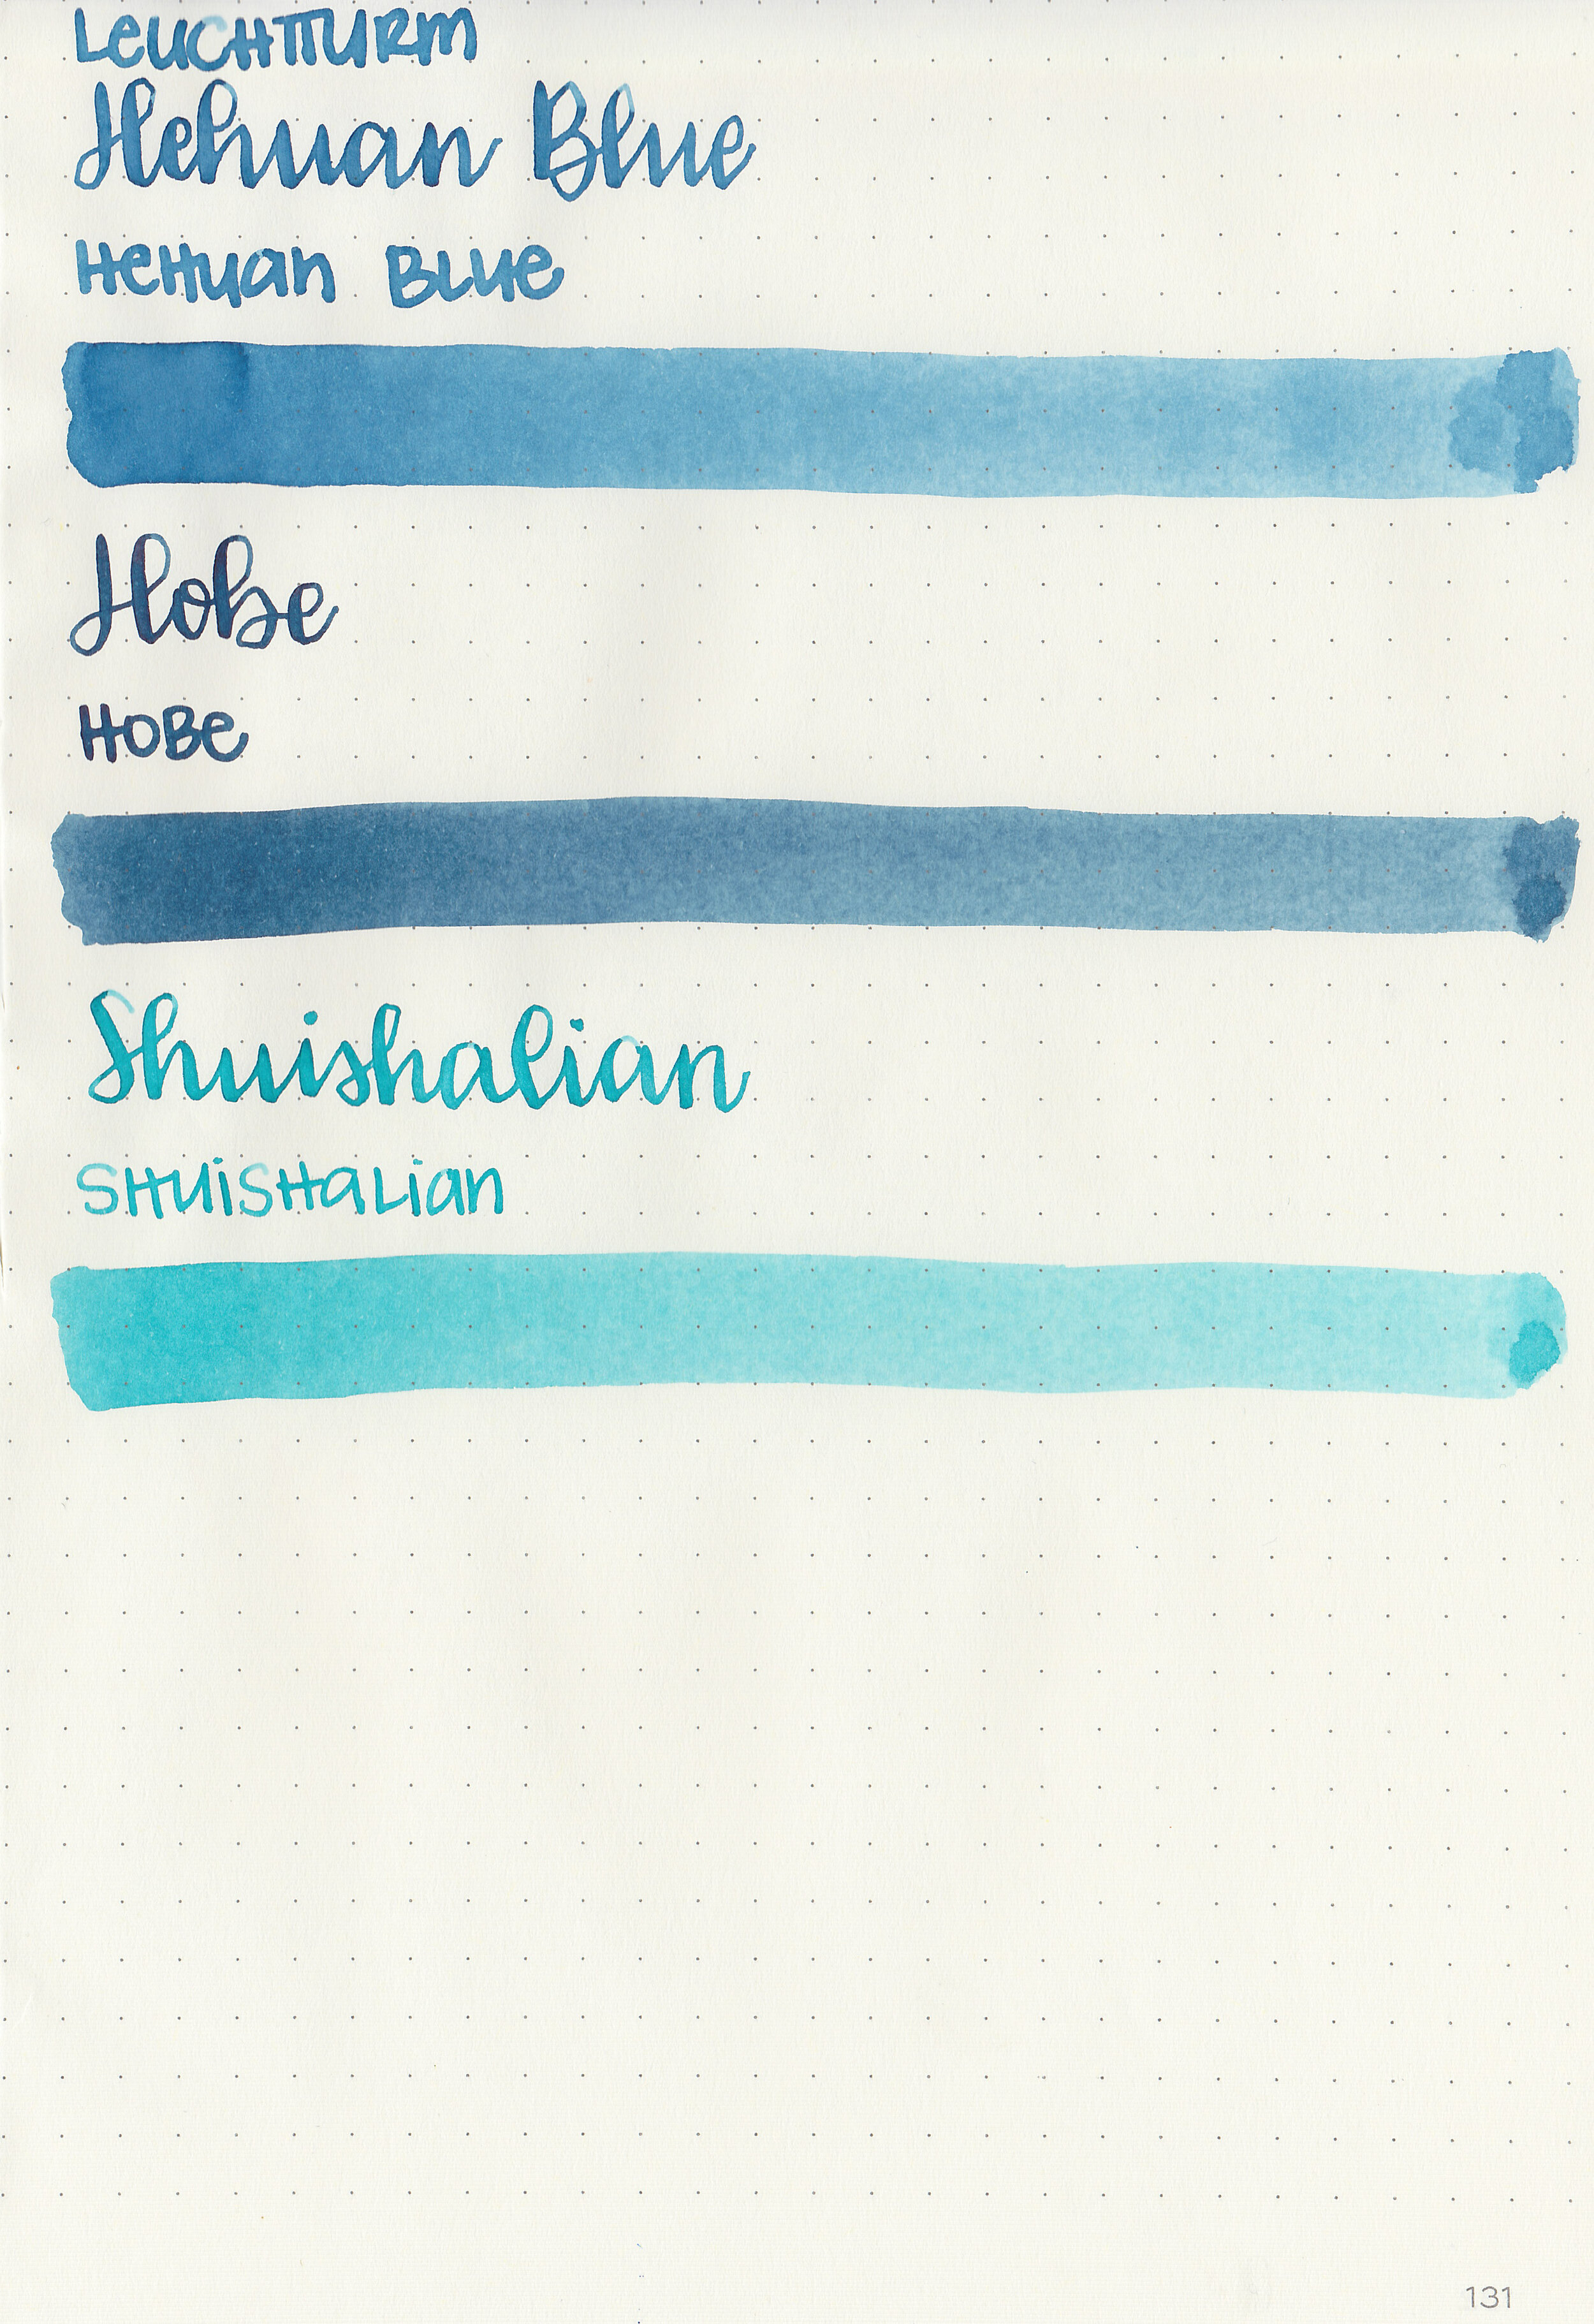 LeUCHTTURm
Hehuan Blue
HeHuan BLUe
Hobe
HOBe
Shuishalian
SHUiSHaLian
131